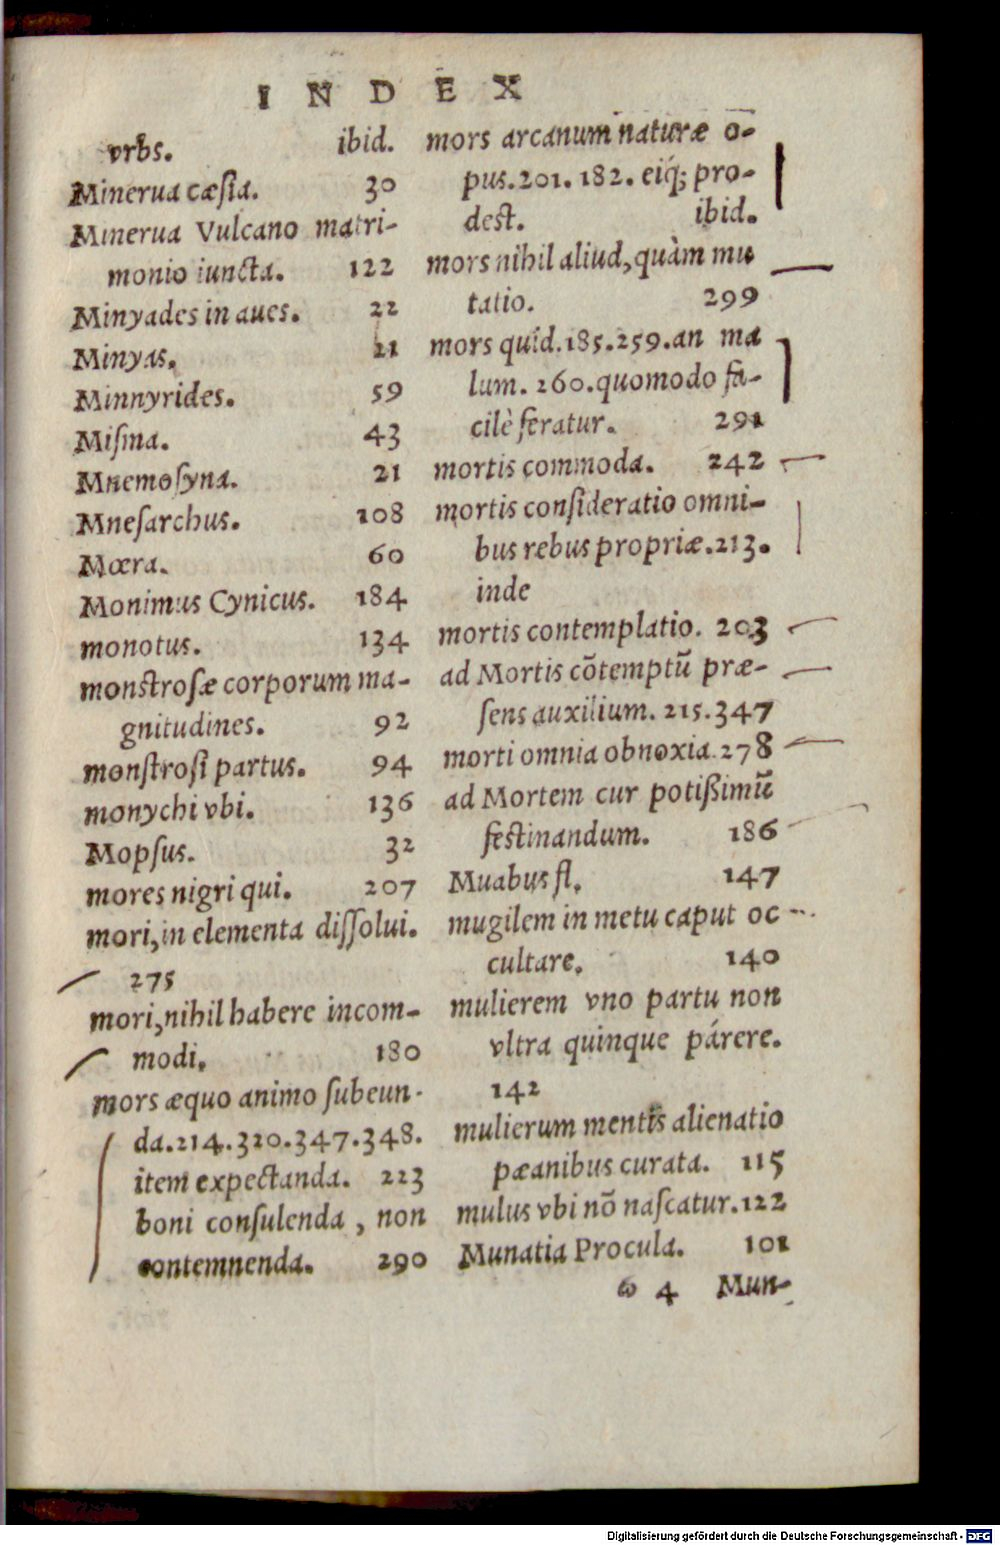 INDEX
vrbs. ibid.
Minerua cæſia. 30
Minerua Vulcano matri-
monio iuncta. 122
Minyades in aues. 22
Minyas. 21
Minnyrides. 59
Miſina. 43
Mnemoſyna. 21
Mneſarchus. 108
Mœra. 60
Monimus Cynicus. 184
monotus. 134
monstroſæ corporum ma-
gnitudines. 92
monſtroſi partus. 94
monychi vbi. 136
Mopſus. 32
mores nigri qui. 207
mori, in elementa diſſolui.
275
mori, nihil habere incom-
modi. 180
mors æquo animo ſubeun-
da. 214. 320. 347. 348.
item expectanda. 223
boni conſulenda, non
contemnenda. 290
mors arcanum naturæ o-
pus. 201. 182. eiq́; pro-
dest. ibid.
mors nihil aliud, quàm mu
tatio. 299
mors quid. 185. 259. an ma
lum. 260. quomodo fa-
cilè feratur. 291
mortis commoda. 242
mortis conſideratio omni-
bus rebus propriæ. 213.
inde
mortis contemplatio. 203
ad Mortis cõtemptũ præ-
ſens auxilium. 215. 347
morti omnia obnoxia. 278
ad Mortem cur potißimũ
feſtinandum. 186
Muabus fl. 147
mugilem in metu caput oc
cultare. 140
mulierem vno partu non
vltra quinque párere.
142
mulierum mentis alienatio
pæanibus curata. 115
mulus vbi nõ naſcatur. 122
Munatia Procula. 101
ω 4 Mun-
Digitalisierung gefördert durch die Deutsche Forschungsgemeinschaft - DFG